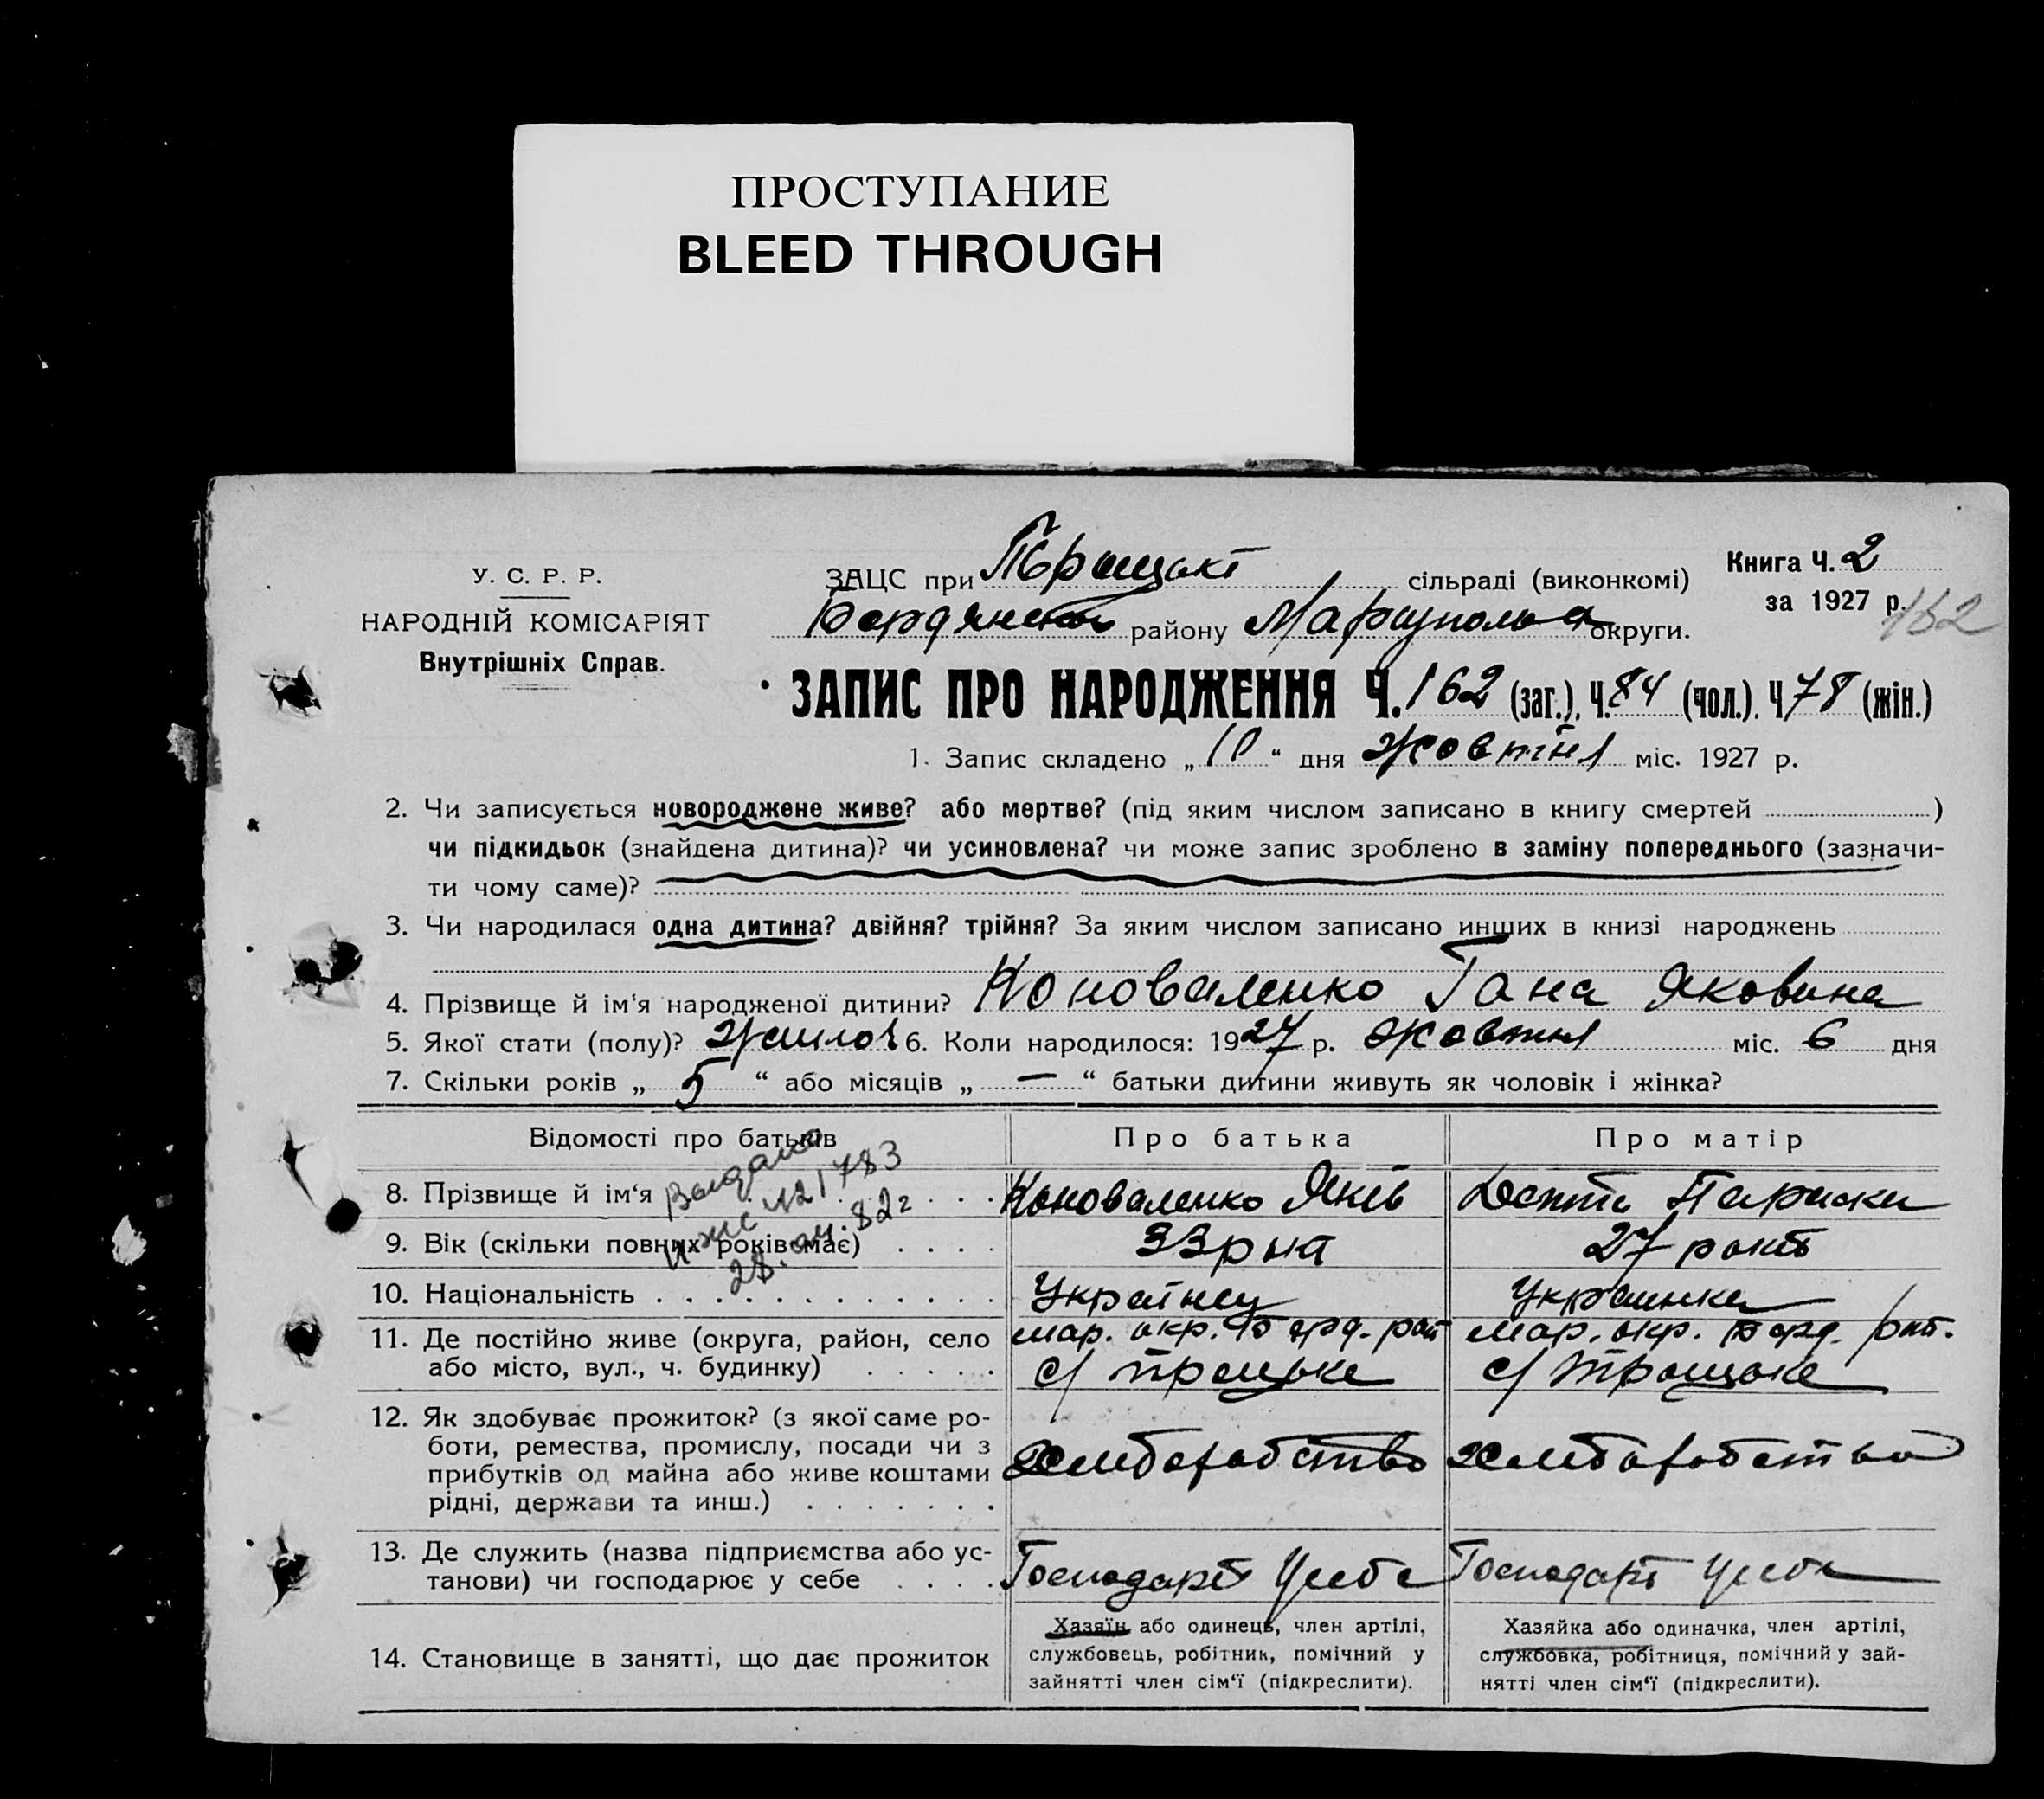 ПРОСТУПАНИЕ
BLEED THROUGH
У. С. Р. Р.
НАРОДНІЙ КОМІСАРІЯТ
Внутрішніх Справ.
ЗАЦС при сільраді (виконкомі)
району округи.
Книга Ч. 2
за 1927 р.
162
ЗАПИС ПРО НАРОДЖЕННЯ Ч. 162 (заг.), Ч. 84 (чол.). Ч 78 (жін.)
1. Запис складено „ 10 “ дня жовтня міс. 1927 р.
2. Чи записується новороджене живе? або мертве? (під яким числом записано в книгу смертей )
чи підкидьок (знайдена дитина)? чи усиновлена? чи може запис зроблено в заміну попереднього (зазначи-
ти чому саме)?
3. Чи народилася одна дитина? двійня? трійня? За яким числом записано инших в книзі народжень
4. Прізвище й ім'я народженої дитини? Коноваленко Гана Яковина
5. Якої стати (полу)? 6. Коли народилося: 1927 р. жовтня міс. 6 дня
7. Скільки років „ 5 “ або місяців „ — “ батьки дитини живуть як чоловік і жінка?
Відомості про батьків
Про батька
Про матір
8. Прізвище й ім‘я
Коноваленко Яків
9. Вік (скільки повних років має)
33
27
10. Національність
Українец
Украинка
11. Де постійно живе (округа, район, село
або місто, вул., ч. будинку)
мар. окр. Берд. рай
с/
мар. окр. Берд.
с/
12. Як здобуває прожиток? (з якої саме ро-
боти, ремества, промислу, посади чи з
прибутків од майна або живе коштами
рідні, держави та инш.)
хлиборобство
хлиборобство
13. Де служить (назва підприємства або ус-
танови) чи господарює у себе
Господарє у себе
Господарє у себе
14. Становище в занятті, що дає прожиток
Хазяїн або одинець, член артілі,
службовець, робітник, помічний у
зайнятті член сім‘ї (підкреслити).
Хазяйка або одиначка, член артілі,
службовка, робітниця, помічний у зай-
нятті член сім‘ї (підкреслити).